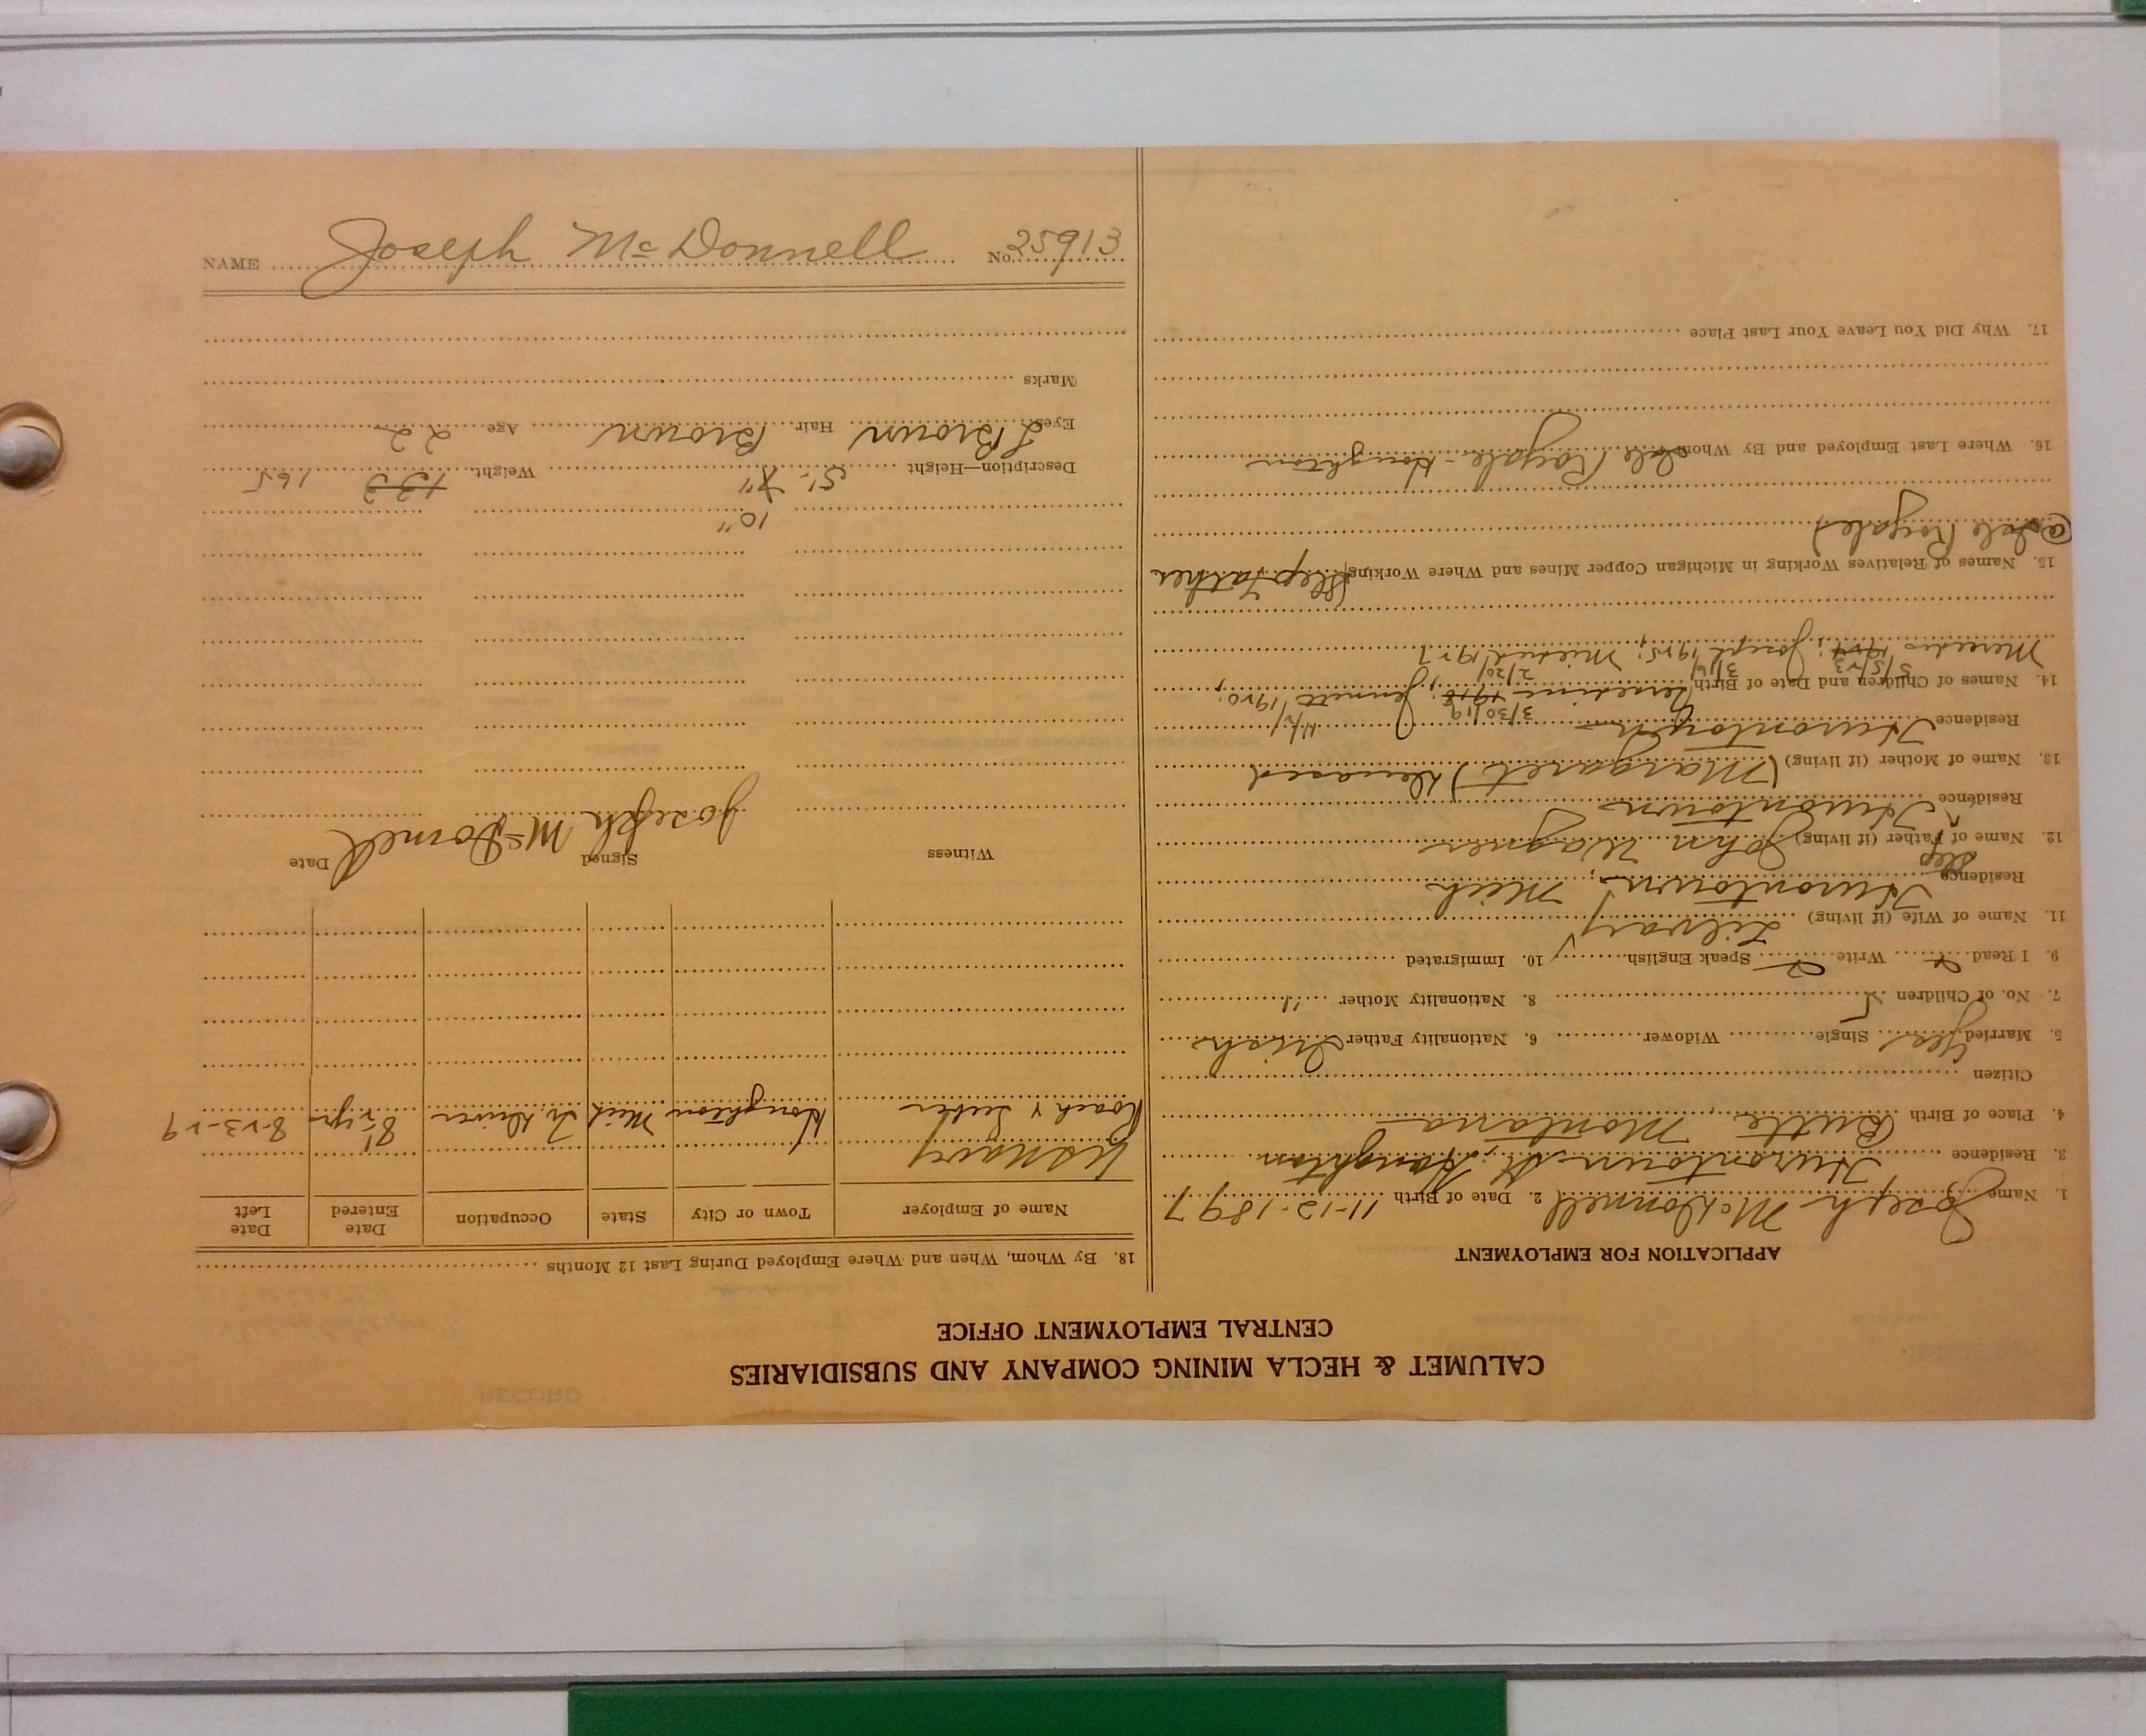 CALUMET & HECLA MINING COMPANY AND SUBSIDIARIES
CENTRAL EMPLOYMENT OFFICE
APPLICATION FOR EMPLOYMENT
1. Name Joseph McDonnell 2. Date of Birth 11-12-1897
3. Residence Hurontown St, Houghton
4. Place of Birth Butte, Montana
Citizen
5. Married yes Single Widower 6. Nationality Father Irish
7. No. of Children 5 8. Nationality Mother "
9. I Read Write Speak English 10. Immigrated
11. Name of Wife (if living)
Residence Hurontown, Mich
12. Name of Step Father (if living) John Wagner
Residence Hurontown
13. Name of Mother (if living) (Margaret) Deceased
Residence Hurontown
14. Names of Children and Date of Birth 3/30/19 1918; 1920;
Mercedes 5/5/23 1924; Joseph 3/16/1925; 2/20/1927
15. Names of Relatives Working in Michigan Copper Mines and Where Working (Step Father
@ Isle Royale)
16. Where Last Employed and By Whom Isle Royale - Houghton
17. Why Did You Leave Your Last Place
18. By Whom, When and Where Employed During Last 12 Months
Name of Employer Town or City State Occupation Date Entered Date Left
US Navy
Roach & Seeber Houghton Mich Tr. Driver 8-23-29
Witness Signed Date
Joseph McDonnell
10"
Description—Height 5'- 7" Weight 133 165
Eyes Brown Hair Brown Age 22
Marks
NAME Joseph McDonnell No. 25913
RECORD